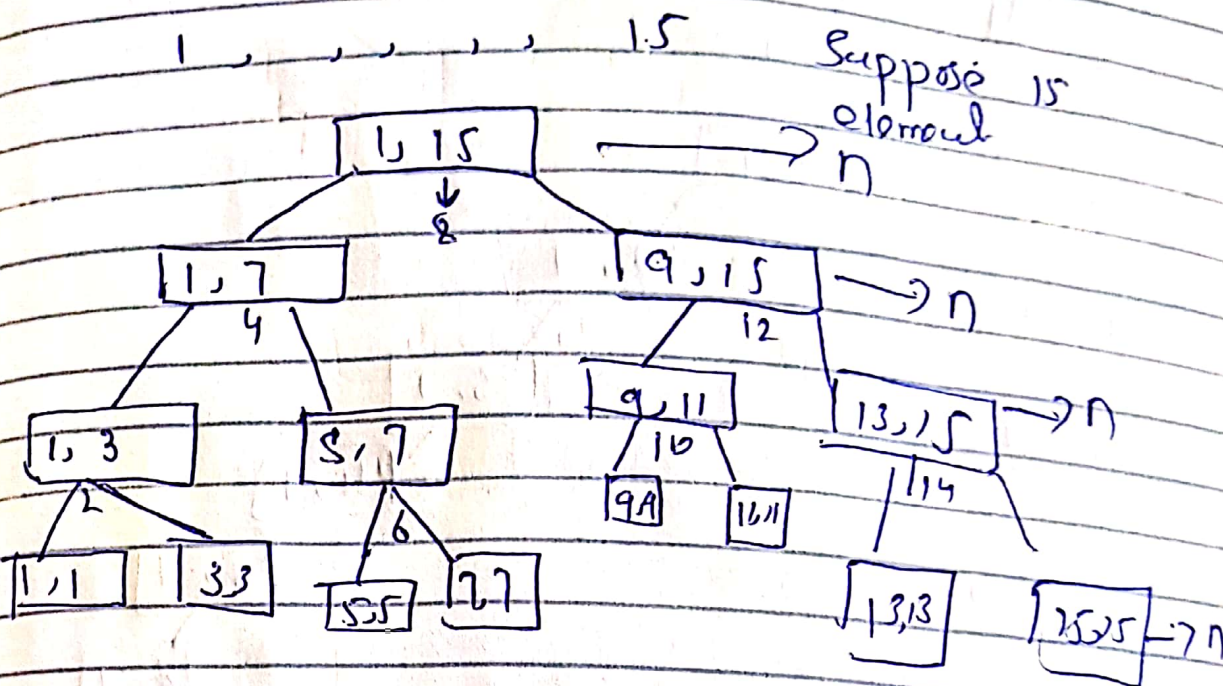 1 , , , , , , 15
Suppose 15
element
1, 15 → n
↓
8
1, 7
9, 15 → n
4
12
1, 3
5, 7
9, 11
13, 15 → n
2
6
10
14
1, 1
3,3
5,5
7 7
9,9
11,11
13,13
15,15 → n